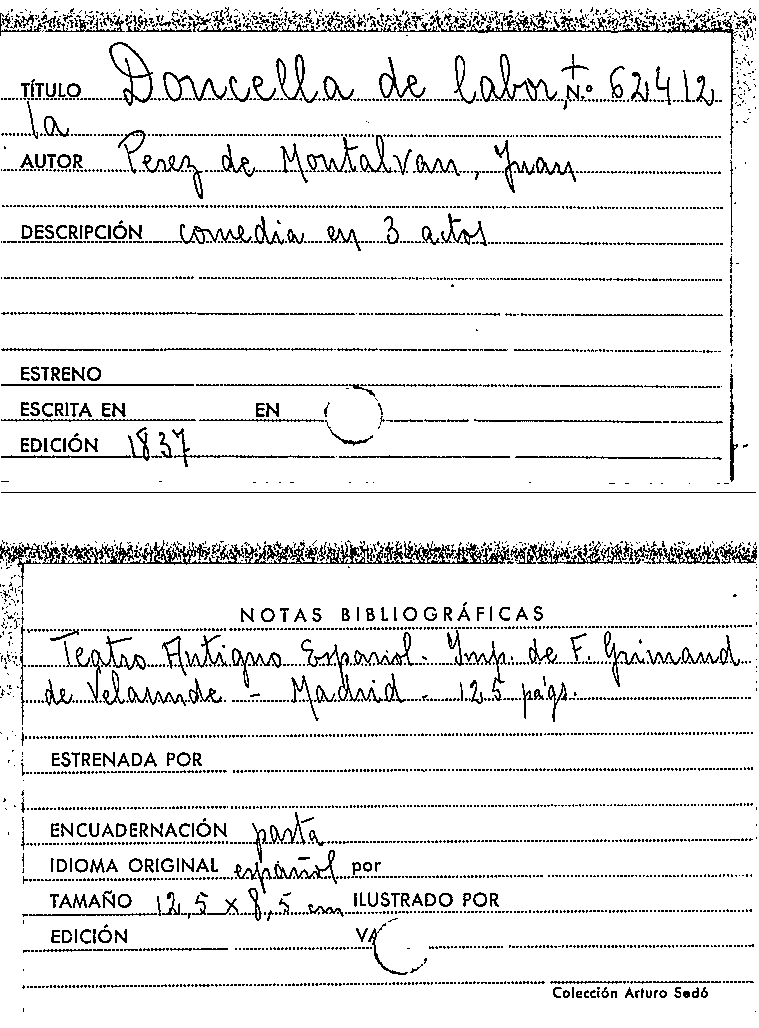 TÍTULO Doncella de labor, Nº 62412
la
AUTOR Perez de Montalvan, Juan
DESCRIPCIÓN comedia en 3 actos
ESTRENO
ESCRITA EN EN
EDICIÓN 1837
NOTAS BIBLIOGRÁFICAS
Teatro Antiguo Español - Imp. de F. Grimaud
de Velaunde - Madrid - 125 págs.
ESTRENADA POR
ENCUADERNACIÓN pasta
IDIOMA ORIGINAL español por
TAMAÑO 12,5 x 8,5 cm ILUSTRADO POR
EDICIÓN VA
Colección Arturo Sedó